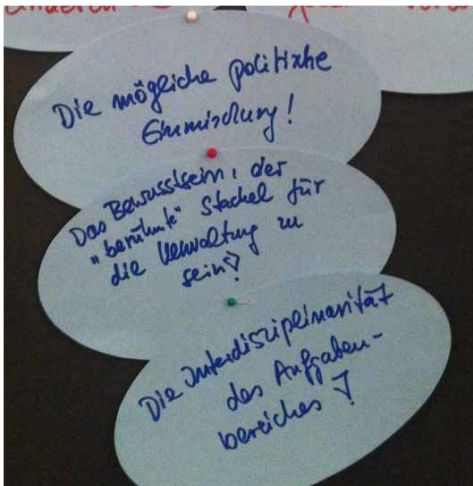 anderen
Die mögliche politische
Einmischung!
Das Bewusstsein, der
"berühmte" Stachel für
die Verwaltung zu
sein!
Die Interdisziplinarität
des Aufgaben-
bereiches!